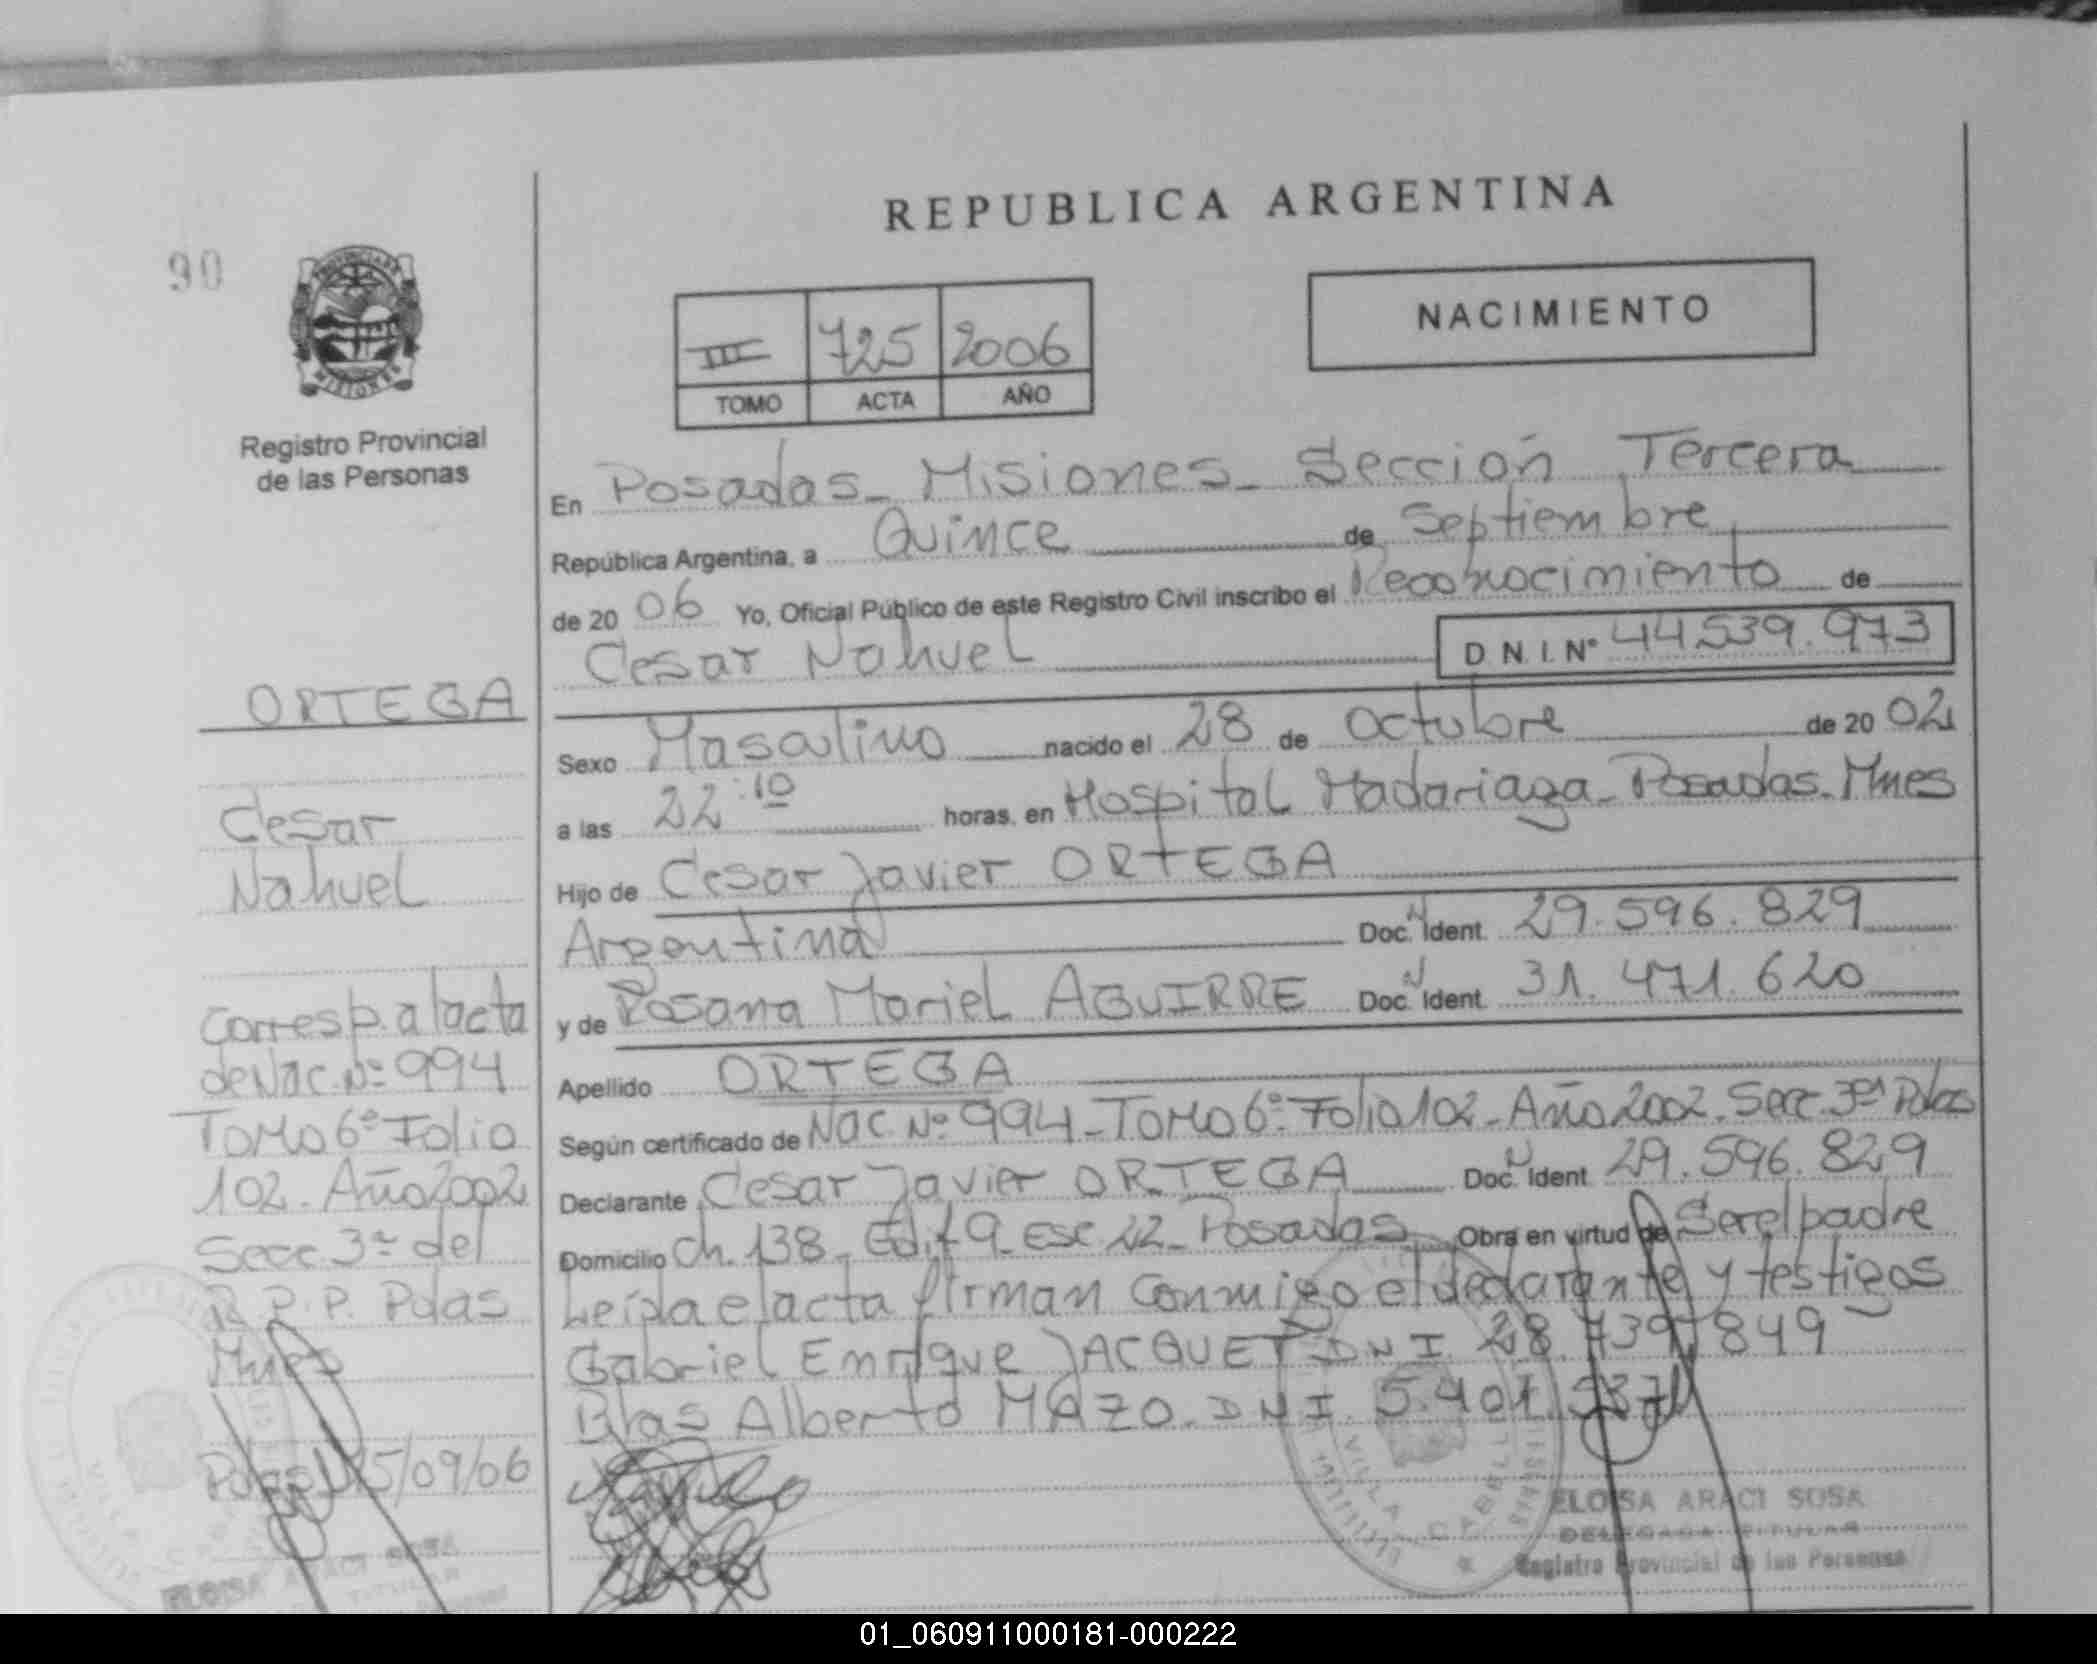 REPUBLICA ARGENTINA
90
NACIMIENTO
III 725 2006
TOMO ACTA AÑO
Registro Provincial
de las Personas
En Posadas - Misiones - Sección Tercera
República Argentina, a Quince de Septiembre
de 20 06 Yo, Oficial Público de este Registro Civil inscribo el Reconocimiento de
Cesar Nahuel D.N.I. N° 44.539.973
Sexo Masculino nacido el 28 de Octubre de 20 02
a las 22:10 horas, en Hospital Madariaga - Posadas - Mnes
Hijo de Cesar Javier ORTEGA
Argentina Doc. Ident. 29.596.829
y de Rosana Mariel AGUIRRE Doc. Ident. 31.471.620
Apellido ORTEGA
Según certificado de Nac. Nº 994 - Tomo 6º - Folio 102 - Año 2002. Secc 3ra Pdas
Declarante Cesar Javier ORTEGA Doc. Ident. 29.596.829
Domicilio Ch. 138 - Edif 9 - Esc 22 - Posadas Obra en virtud de Ser el padre
Leída el acta firman conmigo el declarante y testigos
Gabriel Enrique JACQUET DNI 28.739.849
Blas Alberto MAZO - DNI. 5.401.537
ORTEGA
Cesar
Nahuel
Corresp. a l acta
de Nac. Nº 994
Tomo 6º Folio
102. Año 2002
Secc 3ra del
R.P.P. Pdas
Mnes
Pdas 15/09/06
ELOISA ARACI SOSA
TITULAR
VILLA CABELLO
ELOISA ARACI SOSA
DELEGADA TITULAR
Registro Provincial de las Personas
01_060911000181-000222